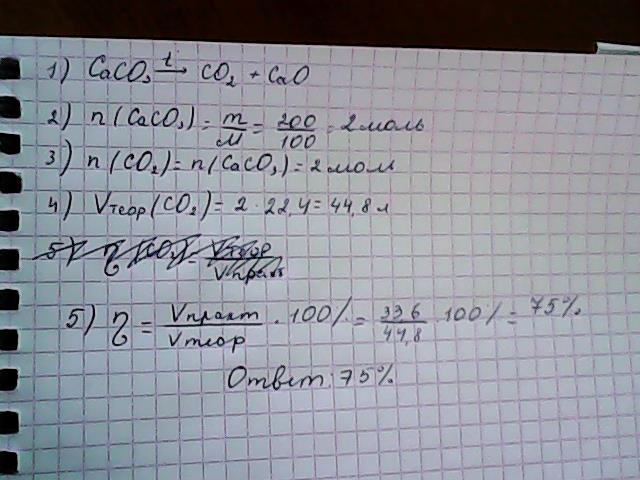 1) CaCO₃ —t→ CO₂ + CaO
2) n(CaCO₃) = m/M = 200/100 = 2 моль
3) n(CO₂) = n(CaCO₃) = 2 моль
4) Vтеор(CO₂) = 2 · 22,4 = 44,8 л
5) η (CO₂) = Vтеор/Vпракт
5) η = Vпракт/Vтеор · 100% = 33,6/44,8 · 100% = 75%
Ответ: 75%